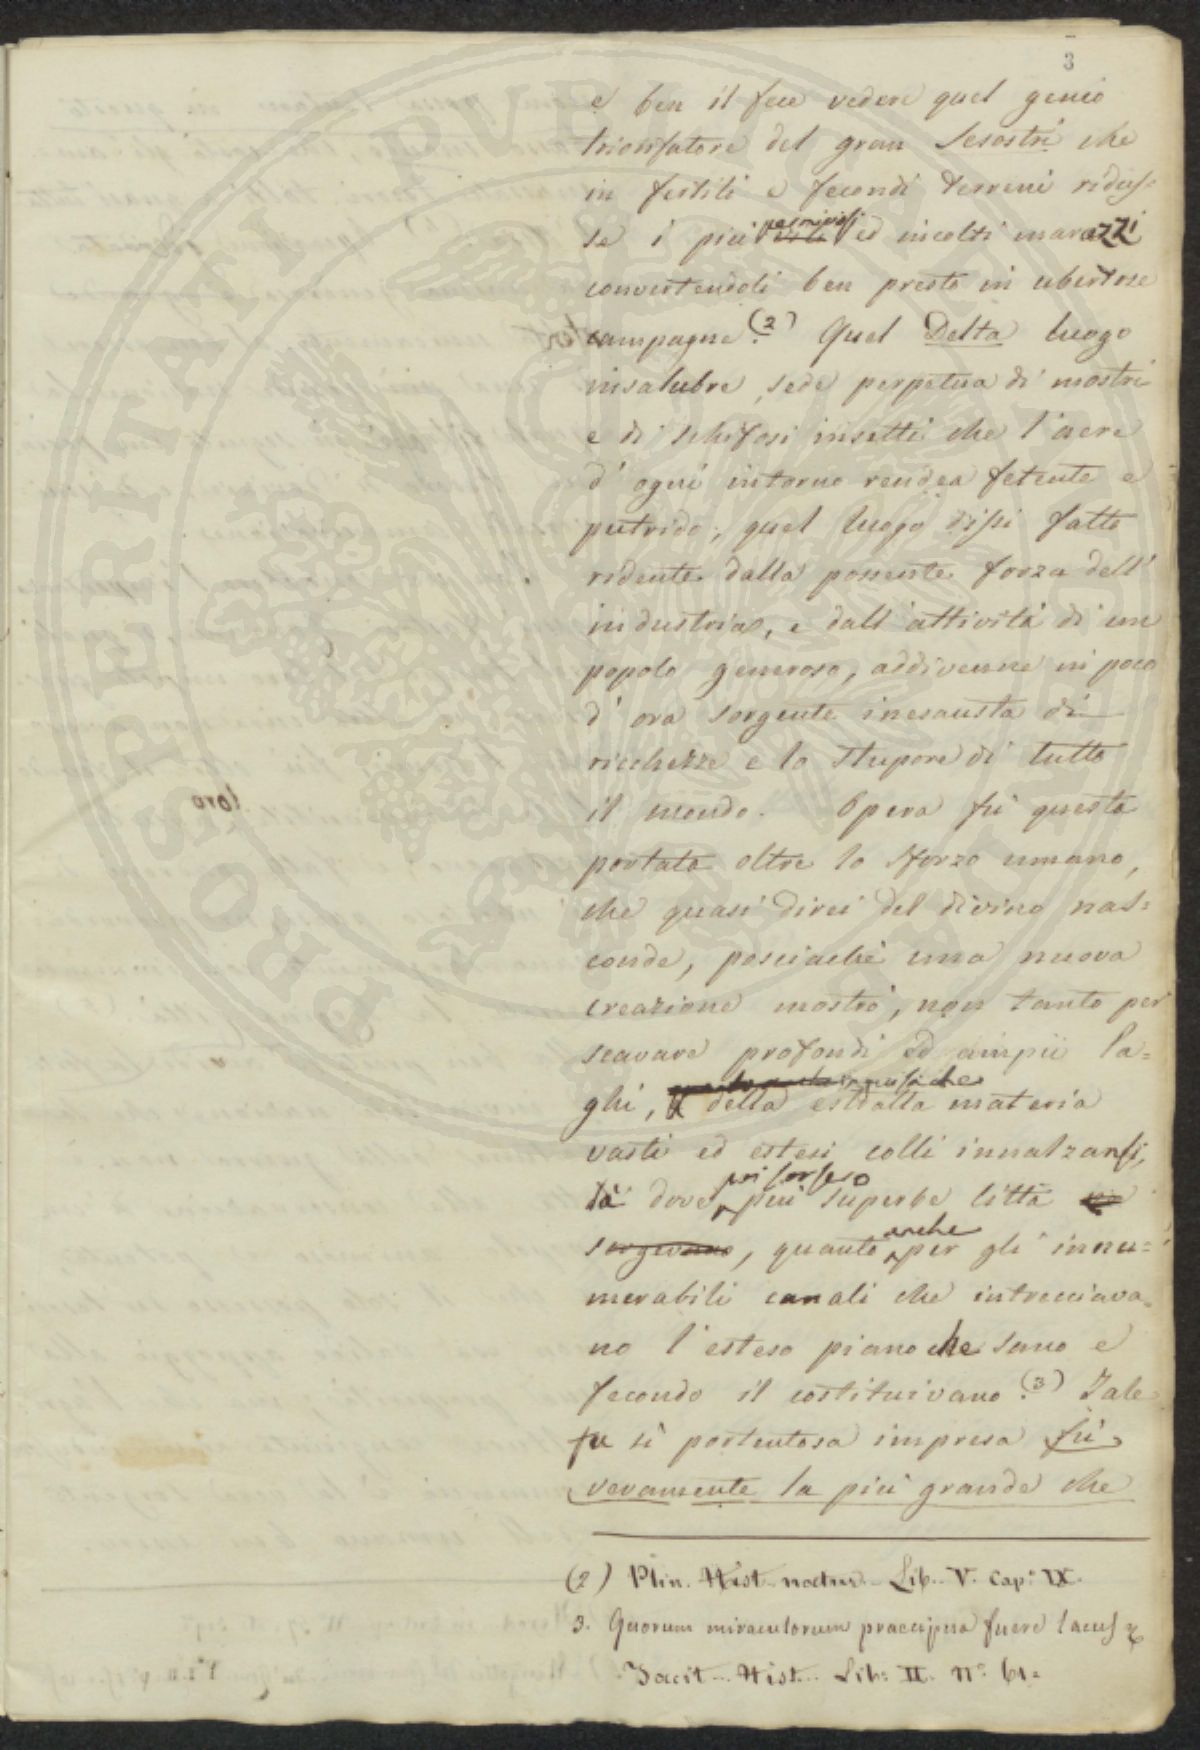 3
e ben il fece vedere quel genio
trionfatore del gran Sesostri che
in fertili e fecondi terreni ridus=
se i più perniciosi ed incolti marazzi
convertendoli ben presto in ubertose
campagne. (2) Quel Delta luogo
insalubre, sede perpetua di mostri
e di schifosi insetti che l'aere
d'ogni intorno rendea fetente e
putrido, quel luogo dissi fatto
ridente dalla possente forza dell'
industria, e dall'attività di un
popolo generoso, addivenne in poco
d'ora sorgente inesausta di
ricchezze e lo stupore di tutto
il mondo. Opera fù questa
portata oltre lo sforzo umano,
che quasi direi del divino nas=
conde, posciachè una nuova
creazione mostrò, non tanto per
scavare profondi ed ampii la=
ghi, che
della estratta materia
vasti ed estesi colli innalzansi,
là dove poi sorsero più superbe Città
sorgevano, quanto anche per gli innu=
merabili canali che intrecciava=
no l'esteso piano che sano e
fecondo il costituivano. (3) Tale
fu sì portentosa impresa fù
veramente la più grande che
(2) Plin. Hist. natur. Lib. V. Cap. IX.
3. Quorum miraculorum praecipua fuere lacus &
Tacit. Hist. Lib. II. n.° 61.
loro
PROSPERITATI PVBLICAE